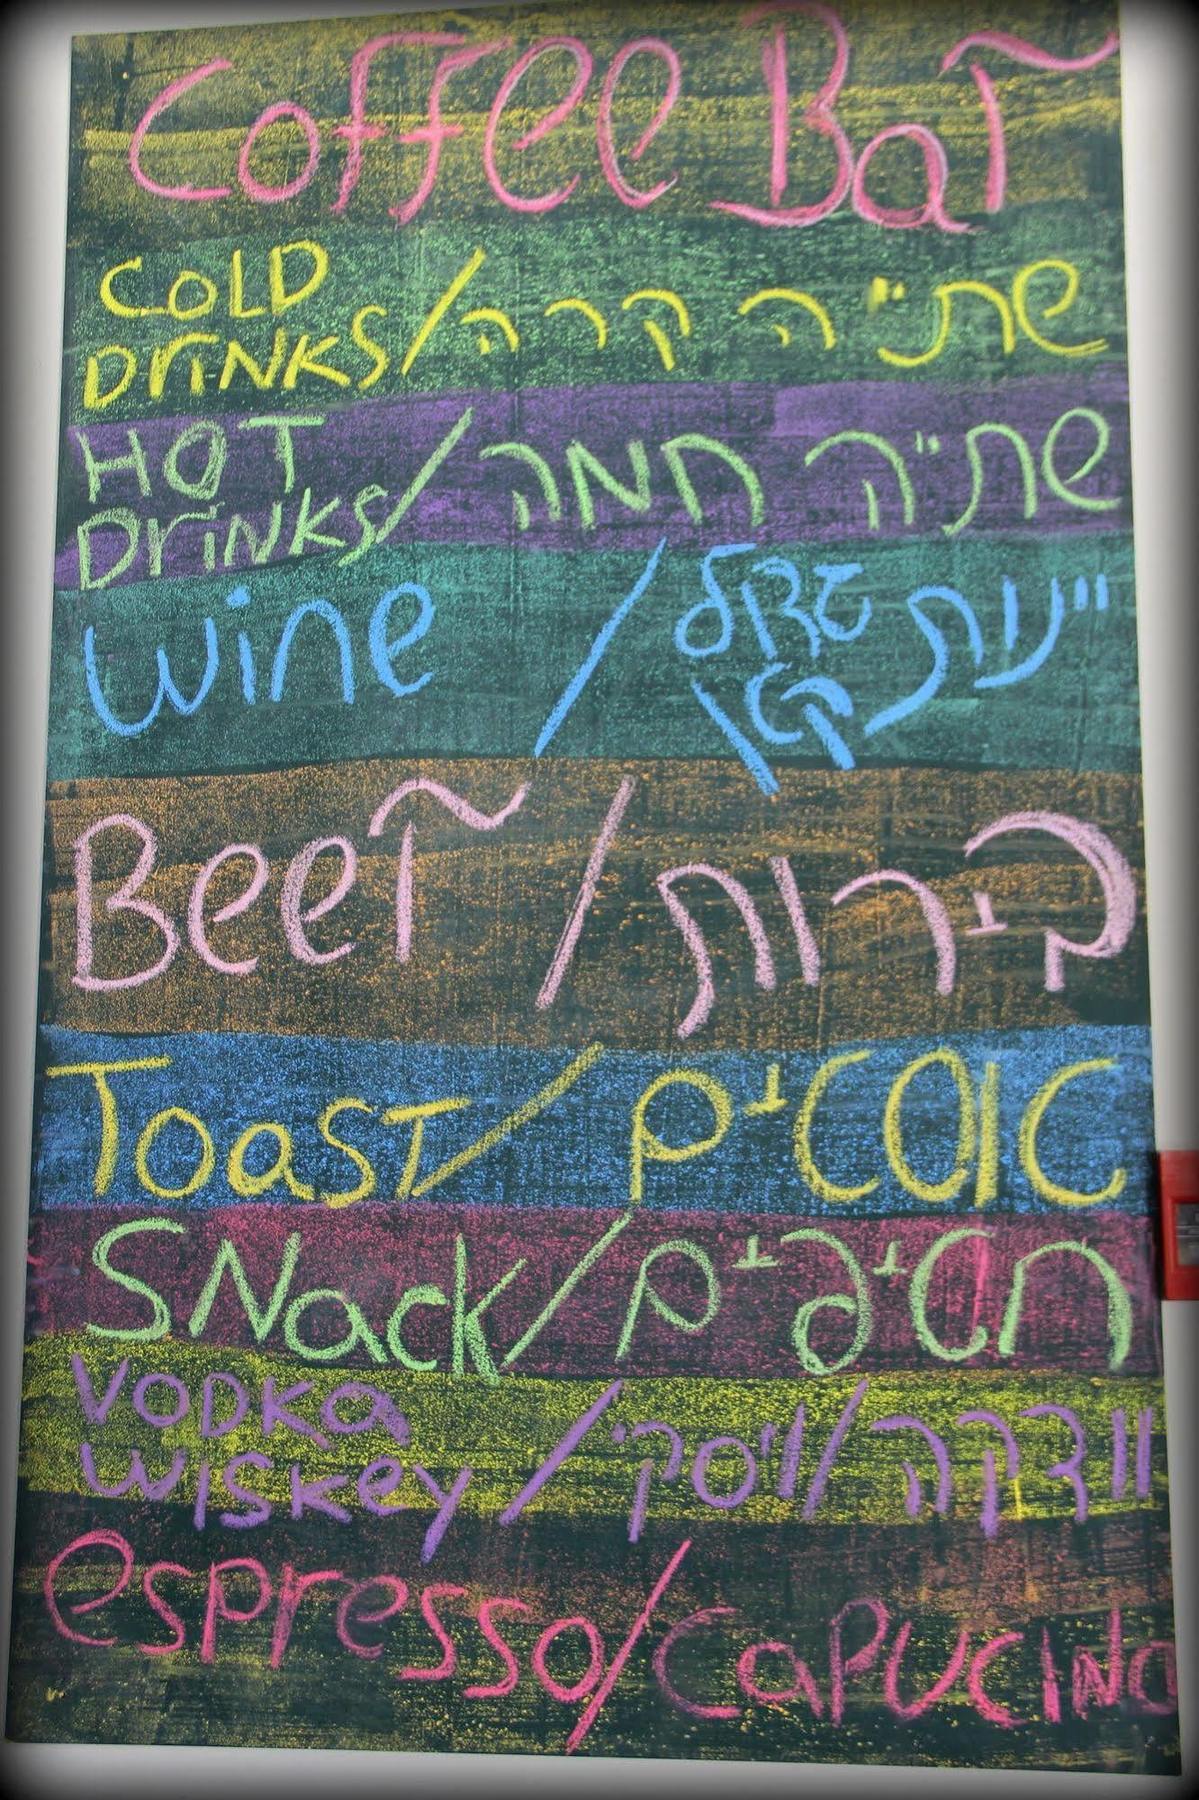 Coffee Bar
COLD DriNKS / שתייה קרה
HOT DriNKS / שתייה חמה
wine / יינות גדול קטן
Beer / בירות
Toast / טוסטים
SNack / חטיפים
VODKa WISKey / וודקה / ויסקי
espresso / CaPUCINO